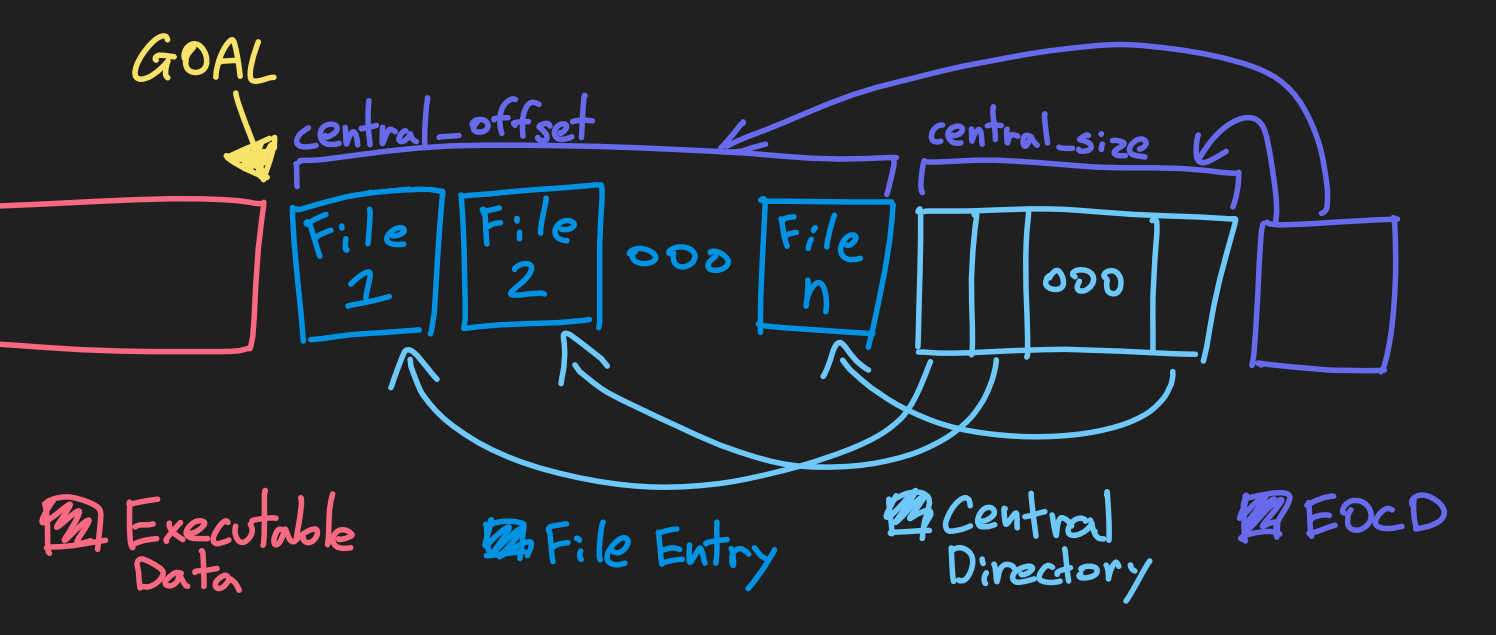 GOAL
central_offset
central_size
File
1
File
2
ooo
File
n
ooo
Executable
Data
File Entry
Central
Directory
EOCD